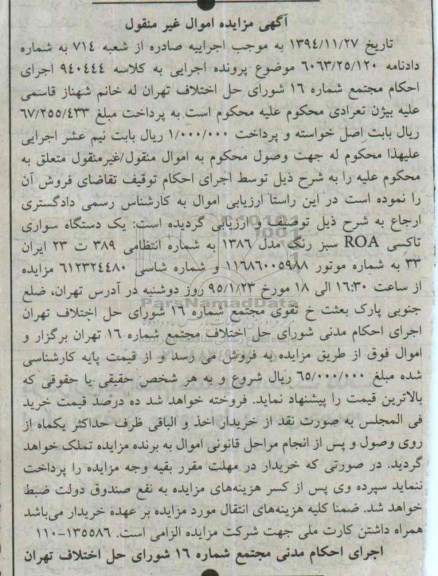 آگهی مزایده اموال غیر منقول
تاریخ ۱۳۹۴/۱۱/۲۷ به موجب اجراییه صادره از شعبه ۷۱۴ به شماره
دادنامه ۶۰۶۳/۲۵/۱۲۰ موضوع پرونده اجرایی به کلاسه ۹۴۰۴۴۴ اجرای
احکام مجتمع شماره ۱۶ شورای حل اختلاف تهران له خانم شهناز قاسمی
علیه بیژن تعرادی محکوم علیه محکوم است به پرداخت مبلغ ۶۷/۲۵۵/۴۳۳
ریال بابت اصل خواسته و پرداخت ۱/۰۰۰/۰۰۰ ریال بابت نیم عشر اجرایی
علیهذا محکوم له جهت وصول محکوم به اموال منقول/غیرمنقول متعلق به
محکوم علیه را به شرح ذیل توسط اجرای احکام توقیف تقاضای فروش آن
را نموده است در این راستا ارزیابی اموال به کارشناس رسمی دادگستری
ارجاع به شرح ذیل توصیف و ارزیابی گردیده است: یک دستگاه سواری
تاکسی ROA سبز رنگ مدل ۱۳۸۶ به شماره انتظامی ۳۸۹ ت ۲۳ ایران
۳۳ به شماره موتور ۱۱۶۸۶۰۰۵۹۸۸ و شماره شاسی ۶۱۲۳۲۴۴۸۰ مزایده
از ساعت ۱۶:۳۰ الی ۱۸ مورخ ۹۵/۱/۲۳ روز دوشنبه در آدرس تهران، ضلع
جنوبی پارک بعثت خ تقوی مجتمع شماره ۱۶ شورای حل اختلاف تهران
اجرای احکام مدنی شورای حل اختلاف مجتمع شماره ۱۶ تهران برگزار و
اموال فوق از طریق مزایده به فروش می رسد و از قیمت پایه کارشناسی
شده مبلغ ۶۵/۰۰۰/۰۰۰ ریال شروع و به هر شخص حقیقی یا حقوقی که
بالاترین قیمت را پیشنهاد نماید. فروخته خواهد شد ده درصد قیمت خرید
فی المجلس به صورت نقد از خریدار اخذ و الباقی ظرف حداکثر یکماه از
روی وصول و پس از انجام مراحل قانونی اموال به برنده مزایده تملک خواهد
گردید. در صورتی که خریدار در مهلت مقرر بقیه وجه مزایده را پرداخت
ننماید سپرده وی پس از کسر هزینه‌های مزایده به نفع صندوق دولت ضبط
خواهد شد. ضمنا کلیه هزینه‌های انتقال مورد مزایده بر عهده خریدار می‌باشد
همراه داشتن کارت ملی جهت شرکت مزایده الزامی است. ۱۳۵۵۸۶-۱۱۰
اجرای احکام مدنی مجتمع شماره ۱۶ شورای حل اختلاف تهران
ParsNamadData